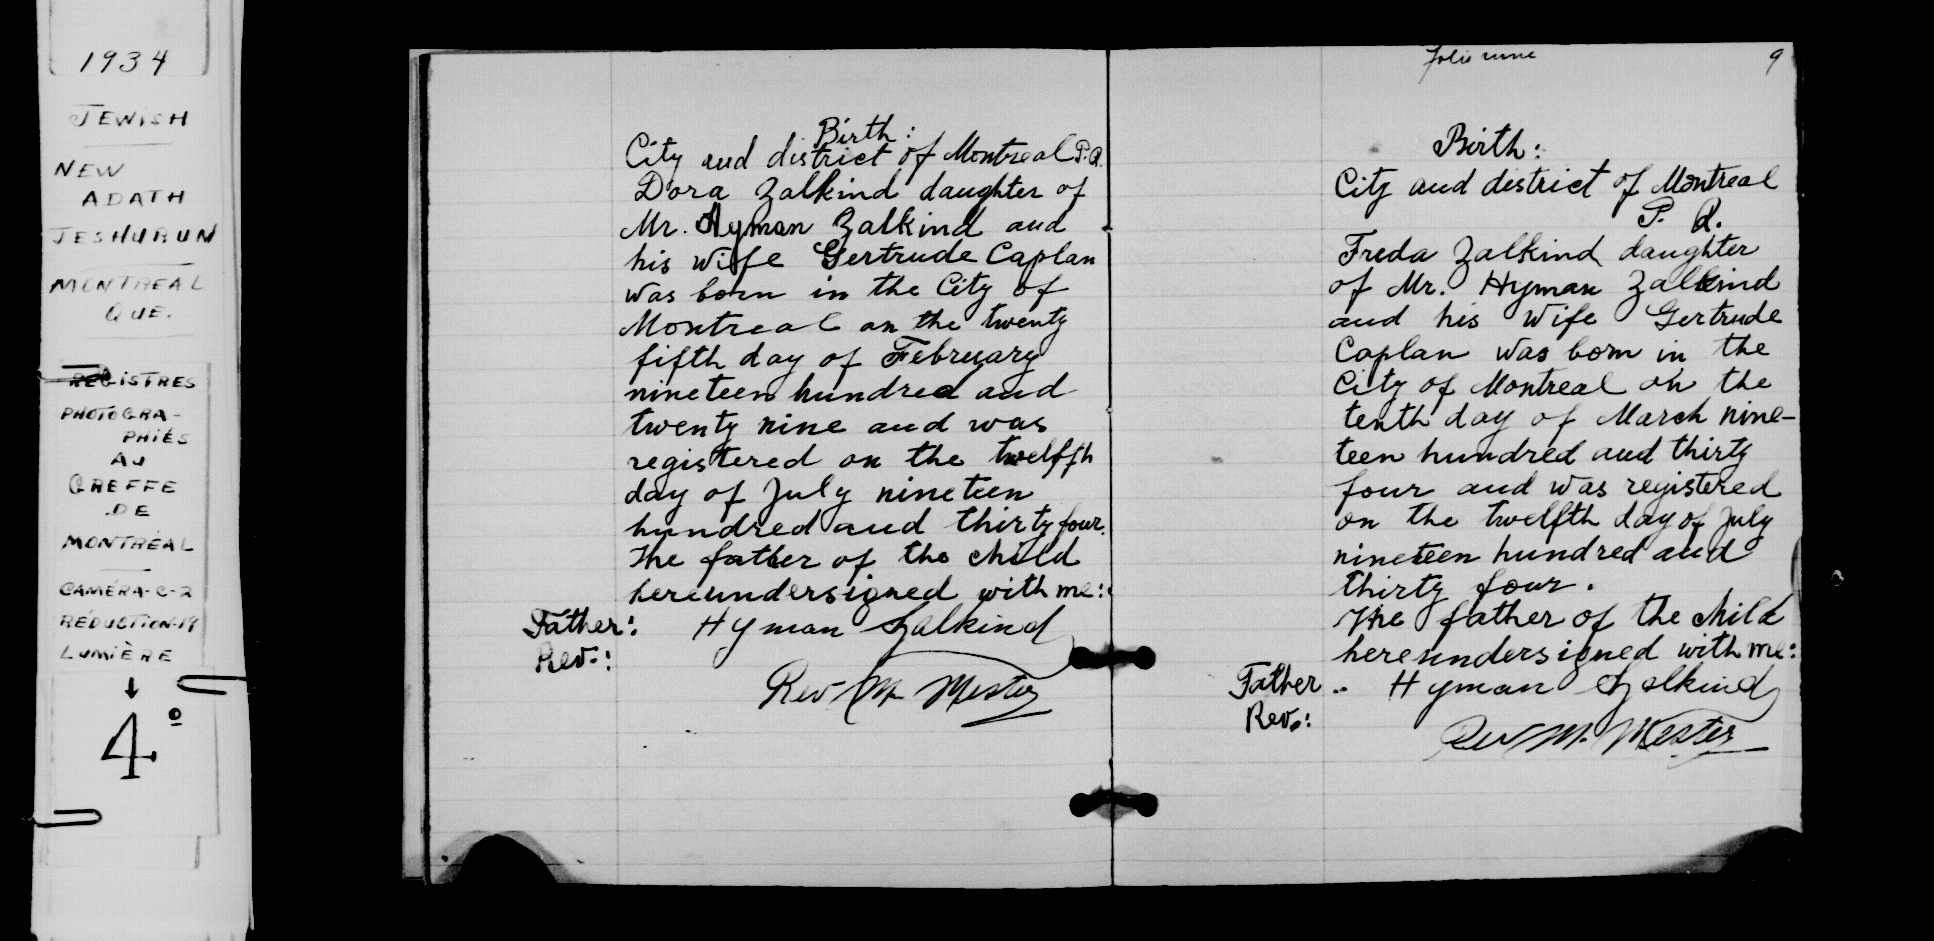 1934
JEWISH
NEW
ADATH
JESHURUN
MONTREAL
QUE.
REGISTRES
PHOTOGRA-
PHIÉS
AU
GREFFE
DE
MONTRÉAL
CAMÉRA-C-2
RÉDUCTION-19
LUMIÈRE
4º
Birth:
City and district of Montreal P.Q.
Dora Zalkind daughter of
Mr. Hyman Zalkind and
his wife Gertrude Caplan
was born in the City of
Montreal on the twenty
fifth day of February
nineteen hundred and
twenty nine and was
registered on the twelfth
day of July nineteen
hundred and thirty four.
The father of the child
hereundersigned with me:
Father: Hyman Zalkind
Rev.:
Rev M. Mester
folio nine 9
Birth:
City and district of Montreal
P. Q.
Freda Zalkind daughter
of Mr. Hyman Zalkind
and his wife Gertrude
Caplan was born in the
City of Montreal on the
tenth day of March nine-
teen hundred and thirty
four and was registered
on the twelfth day of July
nineteen hundred and
thirty four.
The father of the child
hereundersigned with me:
Father.. Hyman Zalkind
Rev.:
Rev M. Mester